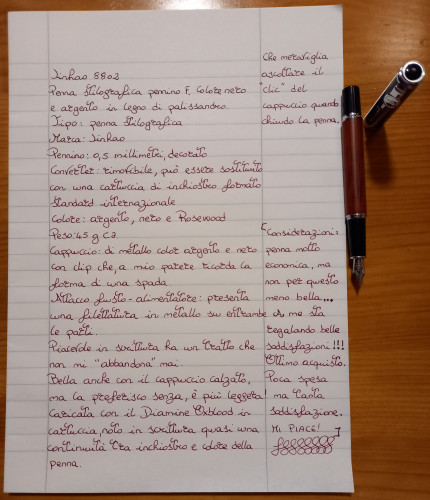 Jinhao 8802
Penna stilografica pennino F. Colore nero
e argento in legno di palissandro.
Tipo: penna stilografica
Marca: Jinhao
Pennino: 0,5 millimetri, decorato
Converter: rimovibile, può essere sostituito
con una cartuccia di inchiostro formato
standard internazionale
Colore: argento, nero e Rosewood
Peso: 45 g ca
Cappuccio: di metallo color argento e nero
con clip che, a mio parere ricorda la
forma di una spada.
Attacco fusto - alimentatore: presenta
una filettatura in metallo su entrambe
le parti.
Piacevole in scrittura ha un tratto che
non mi "abbandona" mai.
Bella anche con il cappuccio calzato,
ma la preferisco senza, è più leggera!
Caricata con il Diamine Oxblood in
cartuccia, noto in scrittura quasi una
continuità tra inchiostro e colore della
penna.
Che meraviglia
ascoltare il
"clic" del
cappuccio quando
chiudo la penna.
Considerazioni:
penna molto
economica, ma
non per questo
meno bella...
mi sta
regalando belle
soddisfazioni!!!
Ottimo acquisto.
Poca spesa
ma tanta
soddisfazione.
MI PIACE!